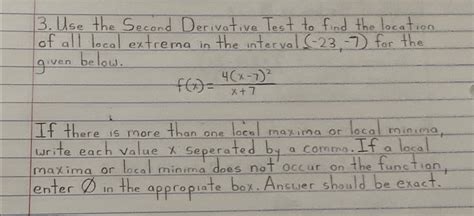 3. Use the Second Derivative Test to find the location
of all local extrema in the interval (-23,-7) for the
given below.
f(x)= 4(x-7)²/x+7
If there is more than one local maxima or local minima,
write each value x seperated by a comma. If a local
maxima or local minima does not occur on the function,
enter Ø in the appropiate box. Answer should be exact.